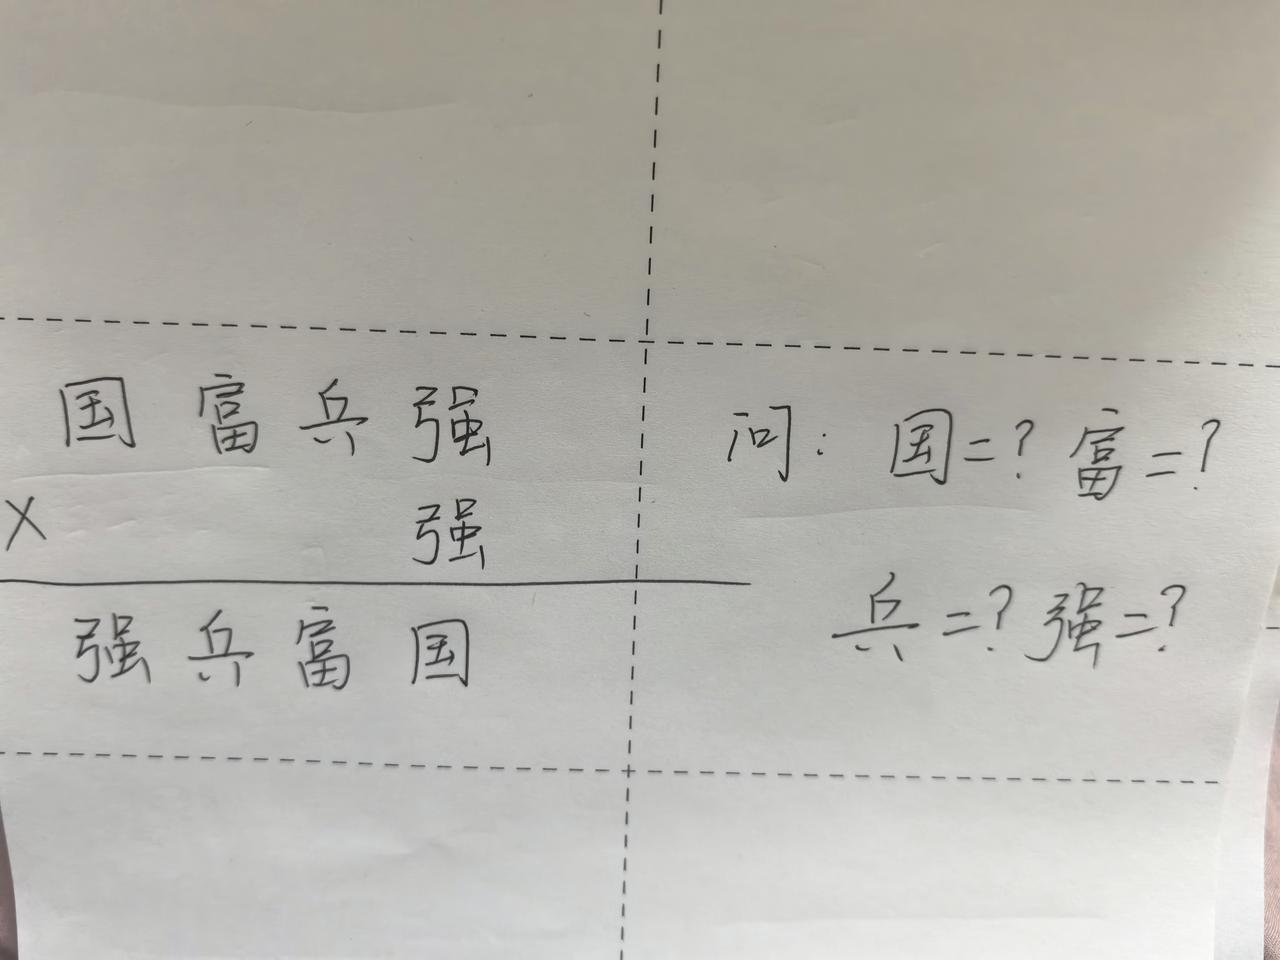 国富兵强
× 强
强兵富国
问：国=？富=？
兵=？强=？